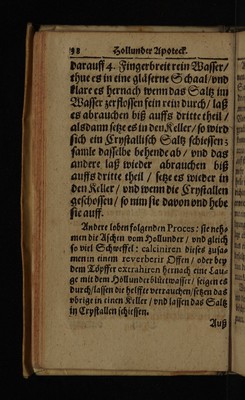 98 Hollunder Apoteck.
darauff 4. Fingerbreit rein Wasser/
thue es in eine gläserne Schaal/ und
klare es hernach wenn das Saltz im
Wasser zerflossen fein rein durch/ laß
es abrauchen biß auffs dritte theil/
alsdann setze es in den Keller/ so wird
sich ein Crystallisch Saltz schiessen:
samle dasselbe behende ab/ und das
andere laß wieder abrauchen biß
auffs dritte theil/ setze es wieder in
den Keller/ und wenn die Crystallen
geschossen/ so nim sie davon und hebe
sie auff.
Andere loben folgenden Proces: sie neh-
men die Aschen vom Hollunder/ und gleich
so viel Schweffel: calciniren dieses zusa-
men in einem reverberir Offen/ oder bey
dem Töpffer extrahiren hernach eine Lau-
ge mit dem Hollunderblütwasser/ seigen es
durch/ lassen die helffte verrauchen/ setzen das
übrige in einen Keller/ und lassen das Saltz
in Crystallen schiessen.
Auß